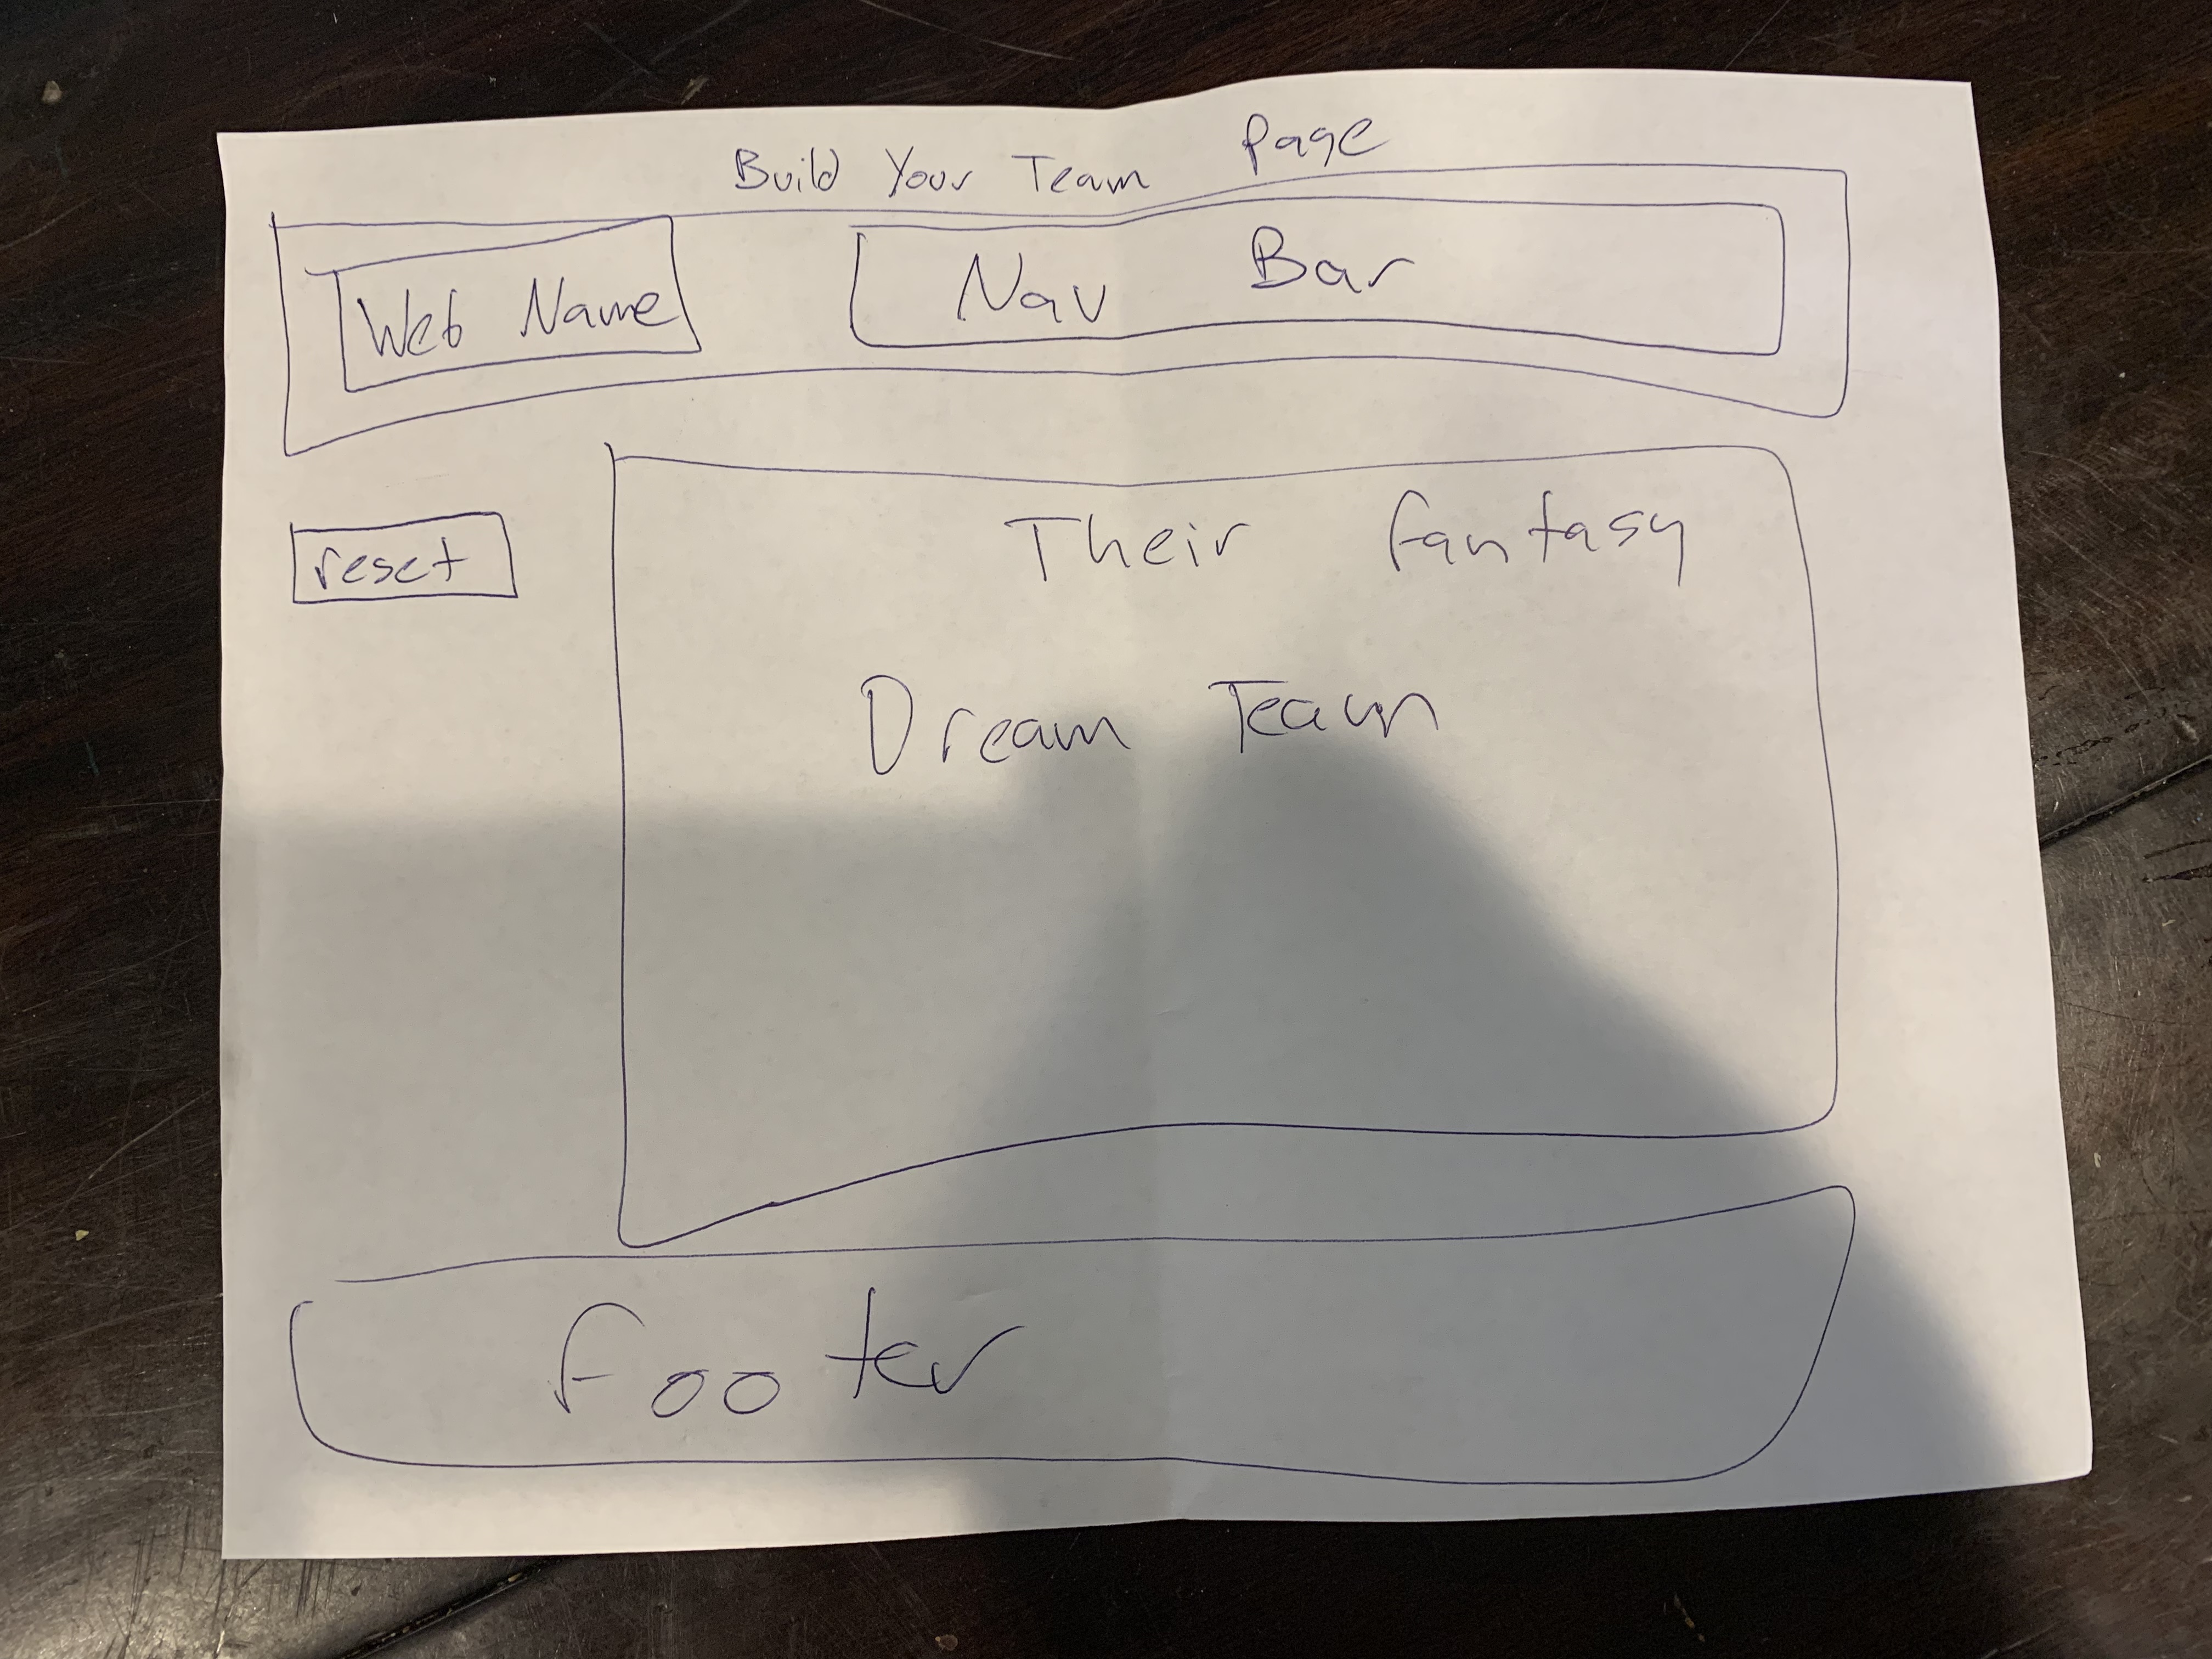 Build Your Team Page
Web Name
Nav Bar
reset
Their fantasy
Dream Team
footer